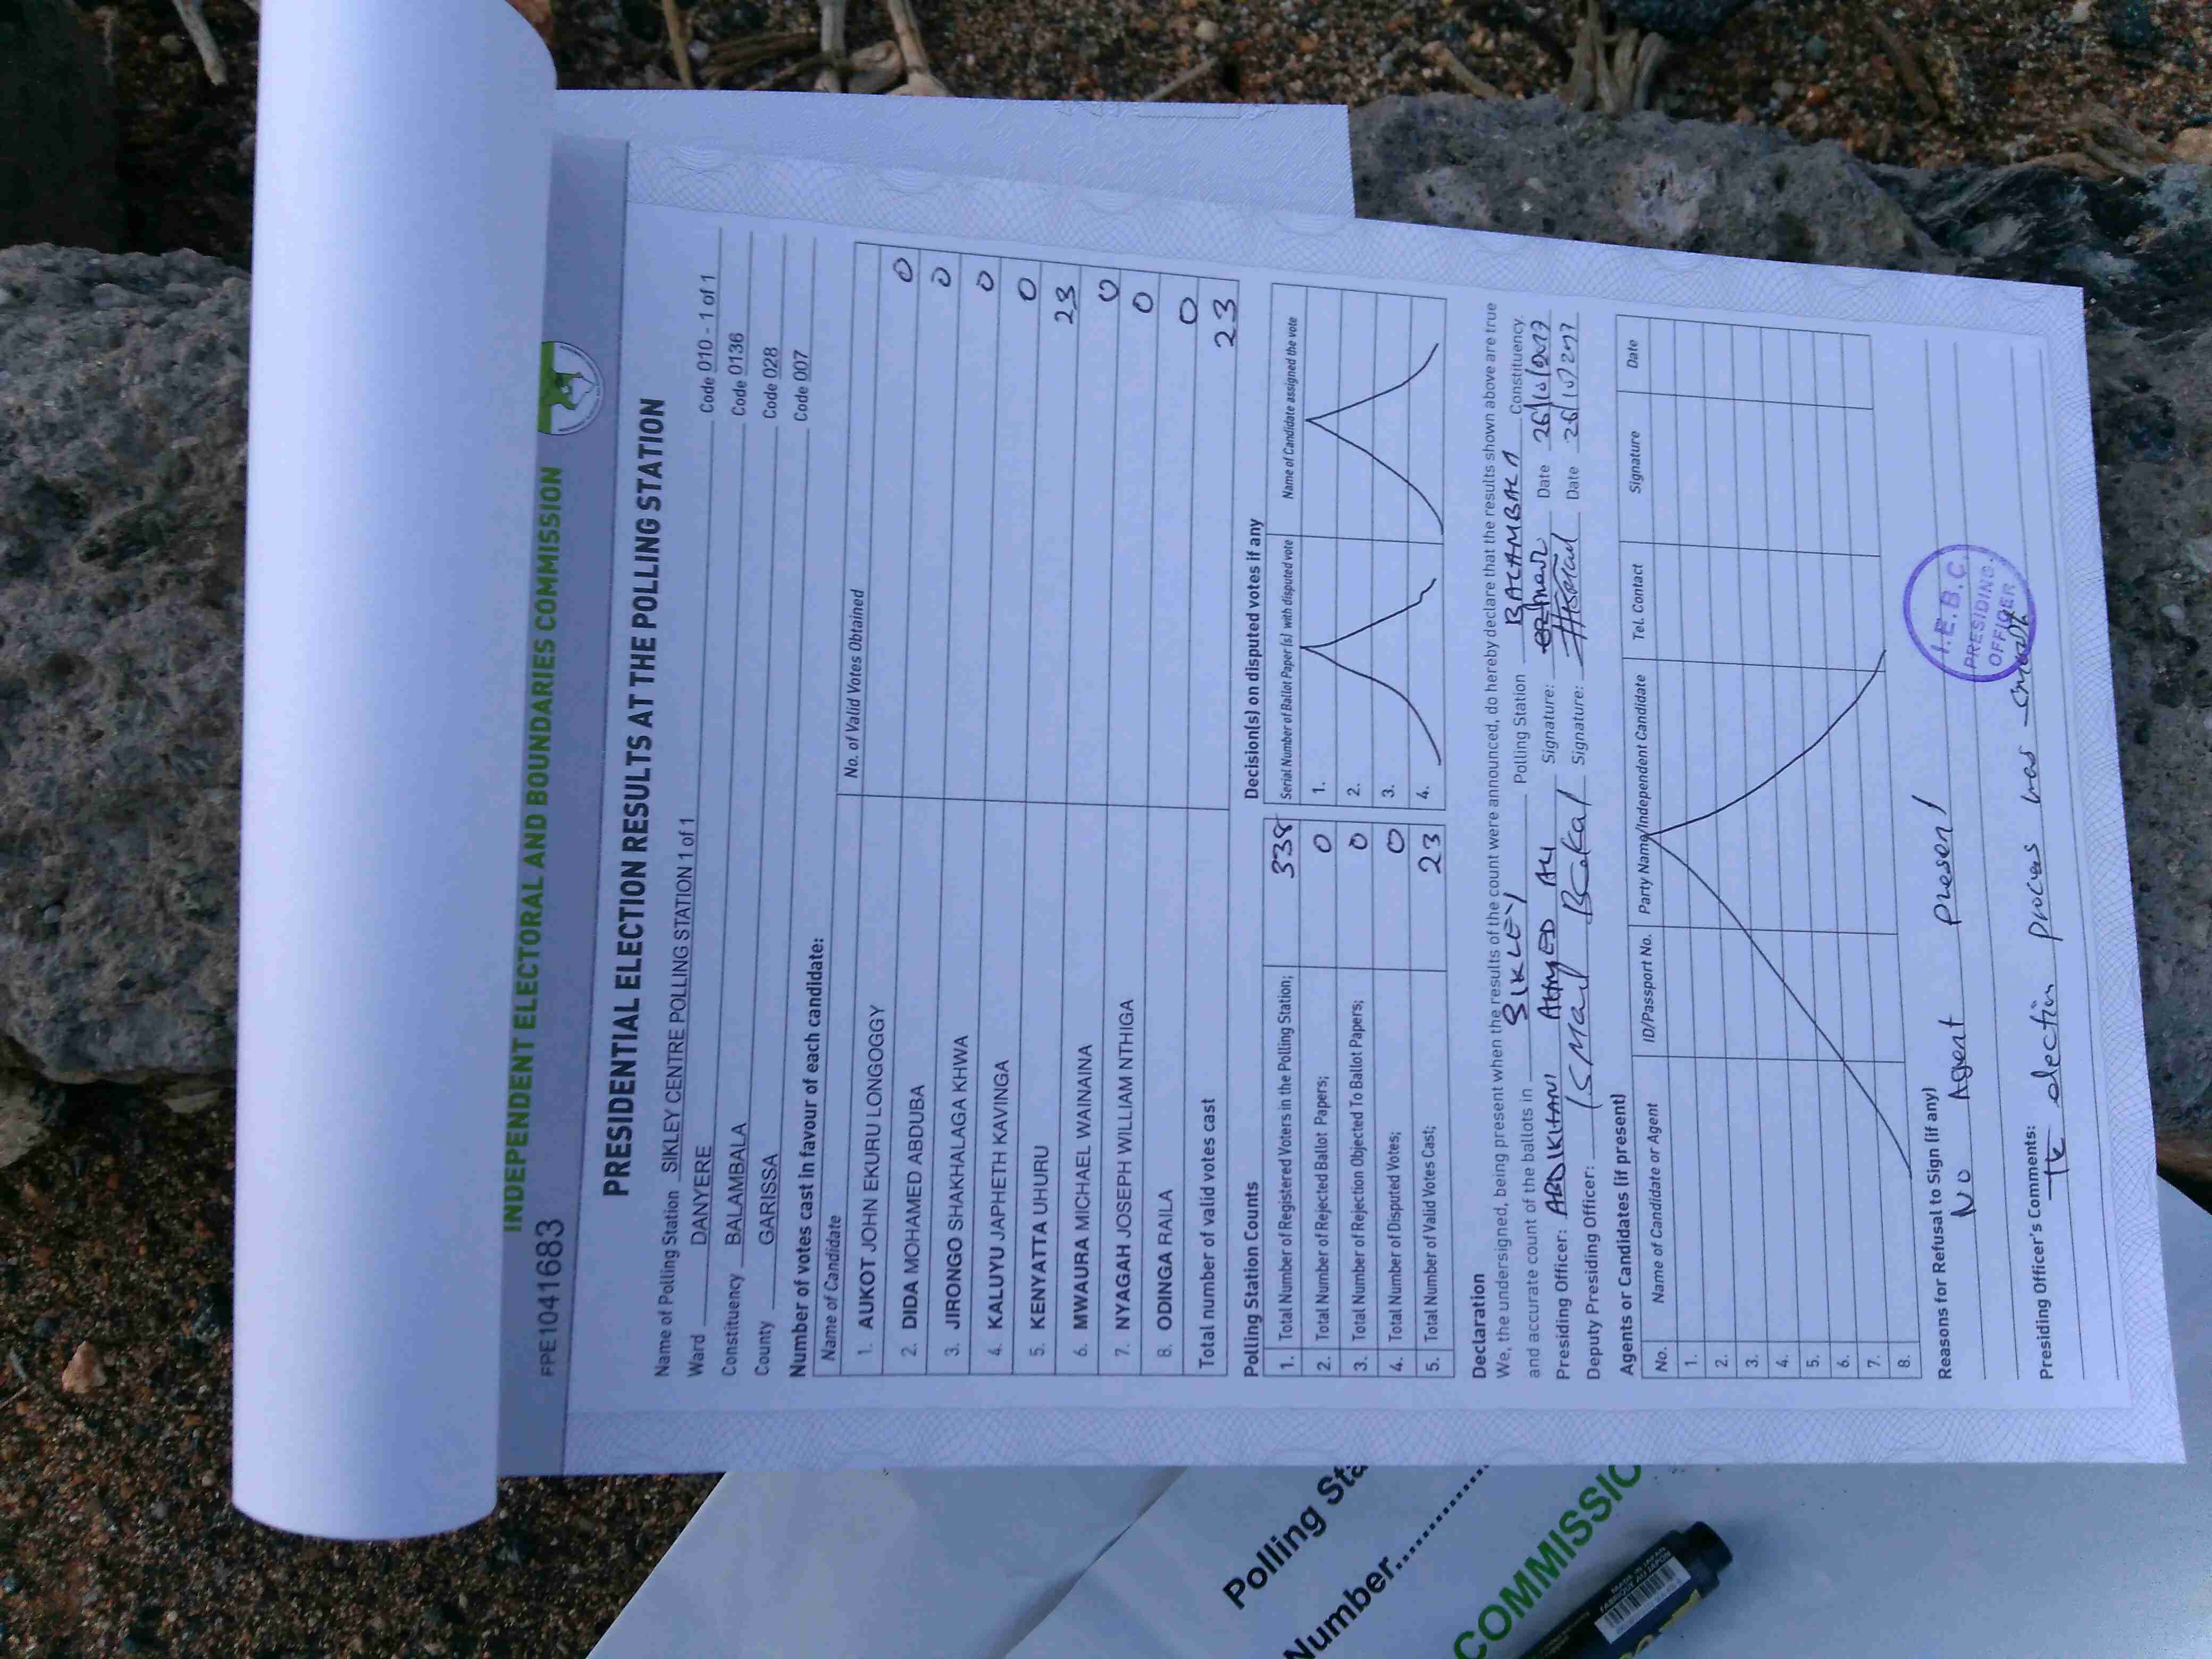 INDEPENDENT ELECTORAL AND BOUNDARIES COMMISSION
FPE1041683
PRESIDENTIAL ELECTION RESULTS AT THE POLLING STATION
Name of Polling Station SIKLEY CENTRE POLLING STATION 1 of 1 Code 010 - 1 of 1
Ward DANYERE Code 0136
Constituency BALAMBALA Code 028
County GARISSA Code 007
Number of votes cast in favour of each candidate:
Name of Candidate No. of Valid Votes Obtained
1. AUKOT JOHN EKURU LONGOGGY 0
2. DIDA MOHAMED ABDUBA 0
3. JIRONGO SHAKHALAGA KHWA 0
4. KALUYU JAPHETH KAVINGA 0
5. KENYATTA UHURU 23
6. MWAURA MICHAEL WAINAINA 0
7. NYAGAH JOSEPH WILLIAM NTHIGA 0
8. ODINGA RAILA 0
Total number of valid votes cast 23
Polling Station Counts
1. Total Number of Registered Voters in the Polling Station; 338
2. Total Number of Rejected Ballot Papers; 0
3. Total Number of Rejection Objected To Ballot Papers; 0
4. Total Number of Disputed Votes; 0
5. Total Number of Valid Votes Cast; 23
Decision(s) on disputed votes if any
Serial Number of Ballot Paper (s) with disputed vote Name of Candidate assigned the vote
1.
2.
3.
4.
Declaration
We, the undersigned, being present when the results of the count were announced, do hereby declare that the results shown above are true
and accurate count of the ballots in SIKLEY Polling Station BALAMBALA Constituency.
Presiding Officer: ABDIKHANI AHMED ALI Signature: Date 26/10/2017
Deputy Presiding Officer: ISMAIL Signature: Date 26/10/2017
Agents or Candidates (if present)
No. Name of Candidate or Agent ID/Passport No. Party Name/Independent Candidate Tel. Contact Signature Date
1.
2.
3.
4.
5.
6.
7.
8.
Reasons for Refusal to Sign (if any)
No Agent present
Presiding Officer's Comments:
The election process was smooth
I.E.B.C
PRESIDING
OFFICER
Polling Sta
Number
COMMISSIO